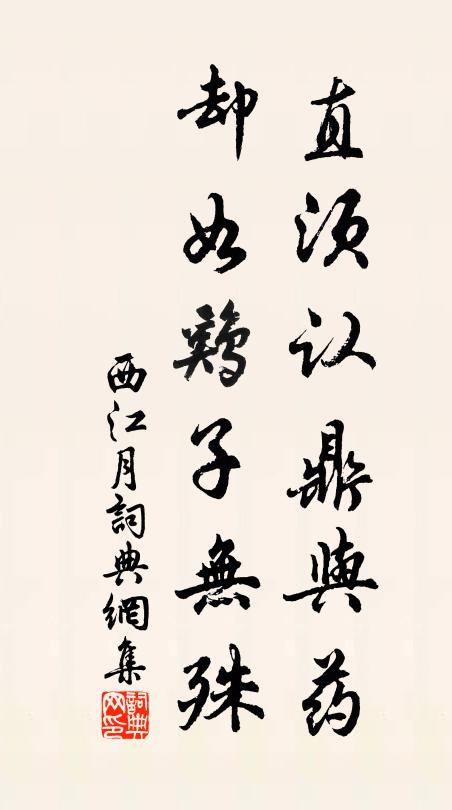 直须认鼎與药
却如鷄子無殊
西江月詞典網集
詞典网印